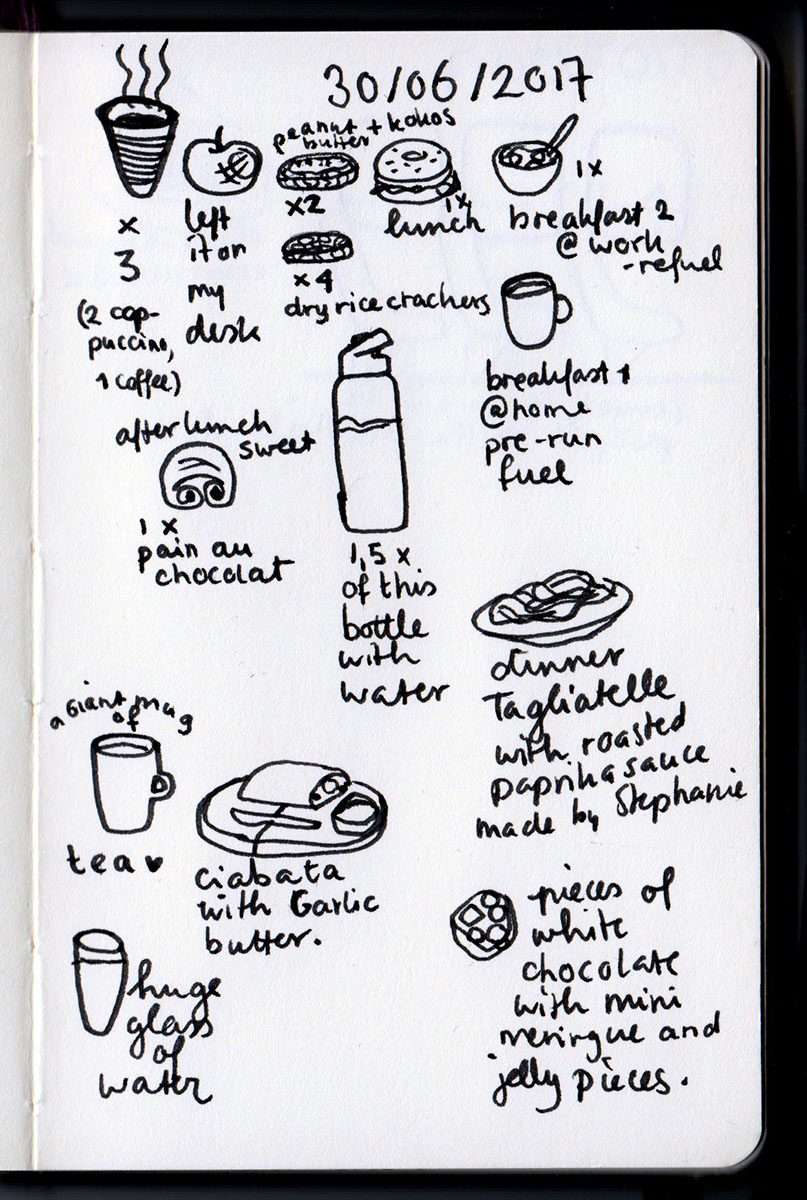 30/06/2017
x
3
(2 cap-
puccino,
1 coffee)
left
it on
my
desk
peanut + kokos
butter
x2
x4
dry rice crackers
1x
lunch
1x
breakfast 2
@ work
-refuel
breakfast 1
@home
pre-run
fuel
after lunch
sweet
1 x
pain au
chocolat
1,5 x
of this
bottle
with
water
dinner
Tagliatelle
with roasted
paprika sauce
made by Stephanie
a Giant mug
of
tea ♥
ciabata
with Garlic
butter.
huge
glass
of
water
pieces of
white
chocolate
with mini
meringue and
jelly pieces.